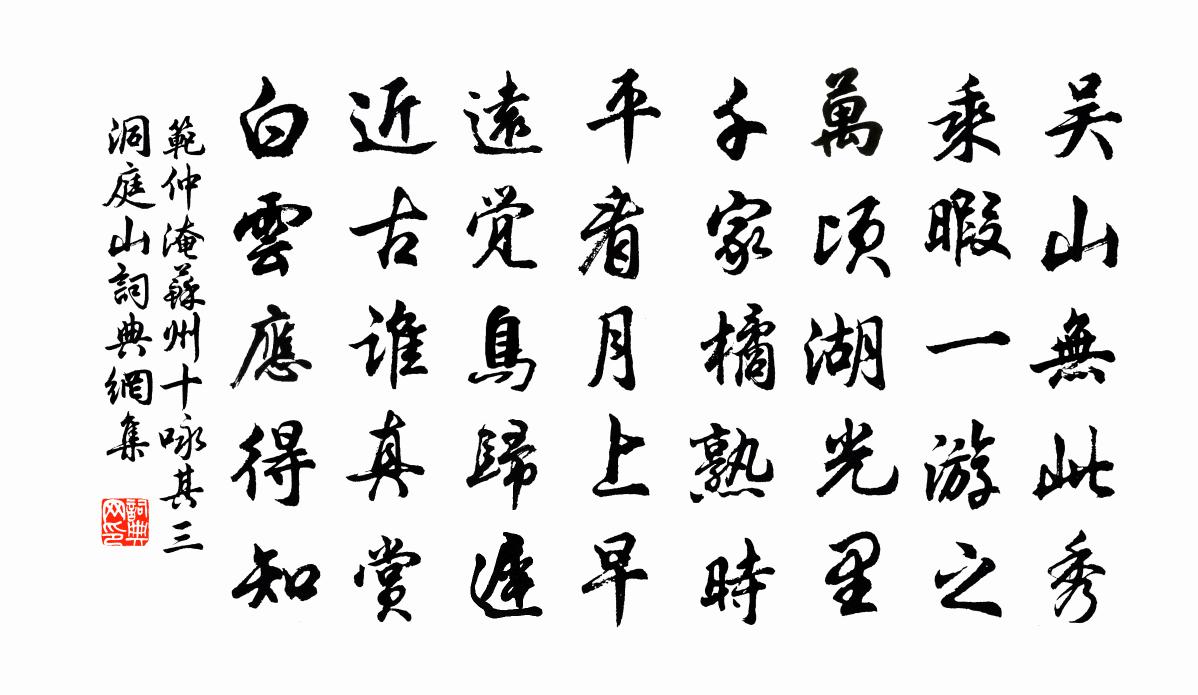 吴山無此秀
乘暇一游之
萬顷湖光里
千家橘熟時
平看月上早
遠觉鳥歸遲
近古谁真赏
白雲應得知
範仲淹蘇州十咏其三
洞庭山詞典網集
詞典网印